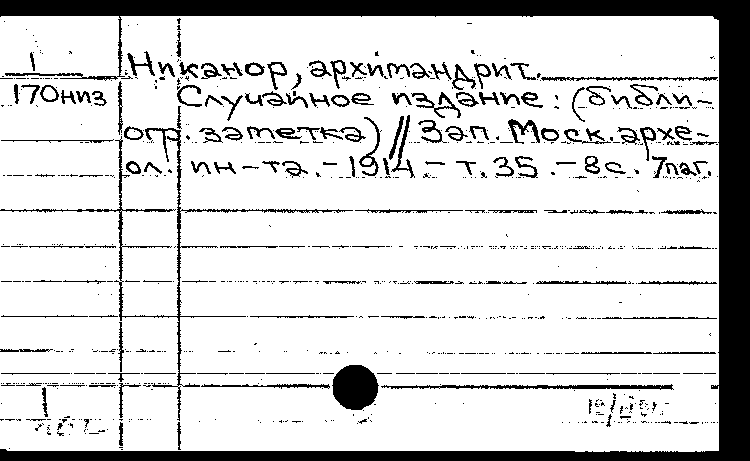 1
170низ
Никанор, архимандрит.
Случайное издание: (библи-
огр. заметка) // Зап. Моск. архе-
ол. ин-та. - 1914 - т. 35. - 8с. 7паг.
1